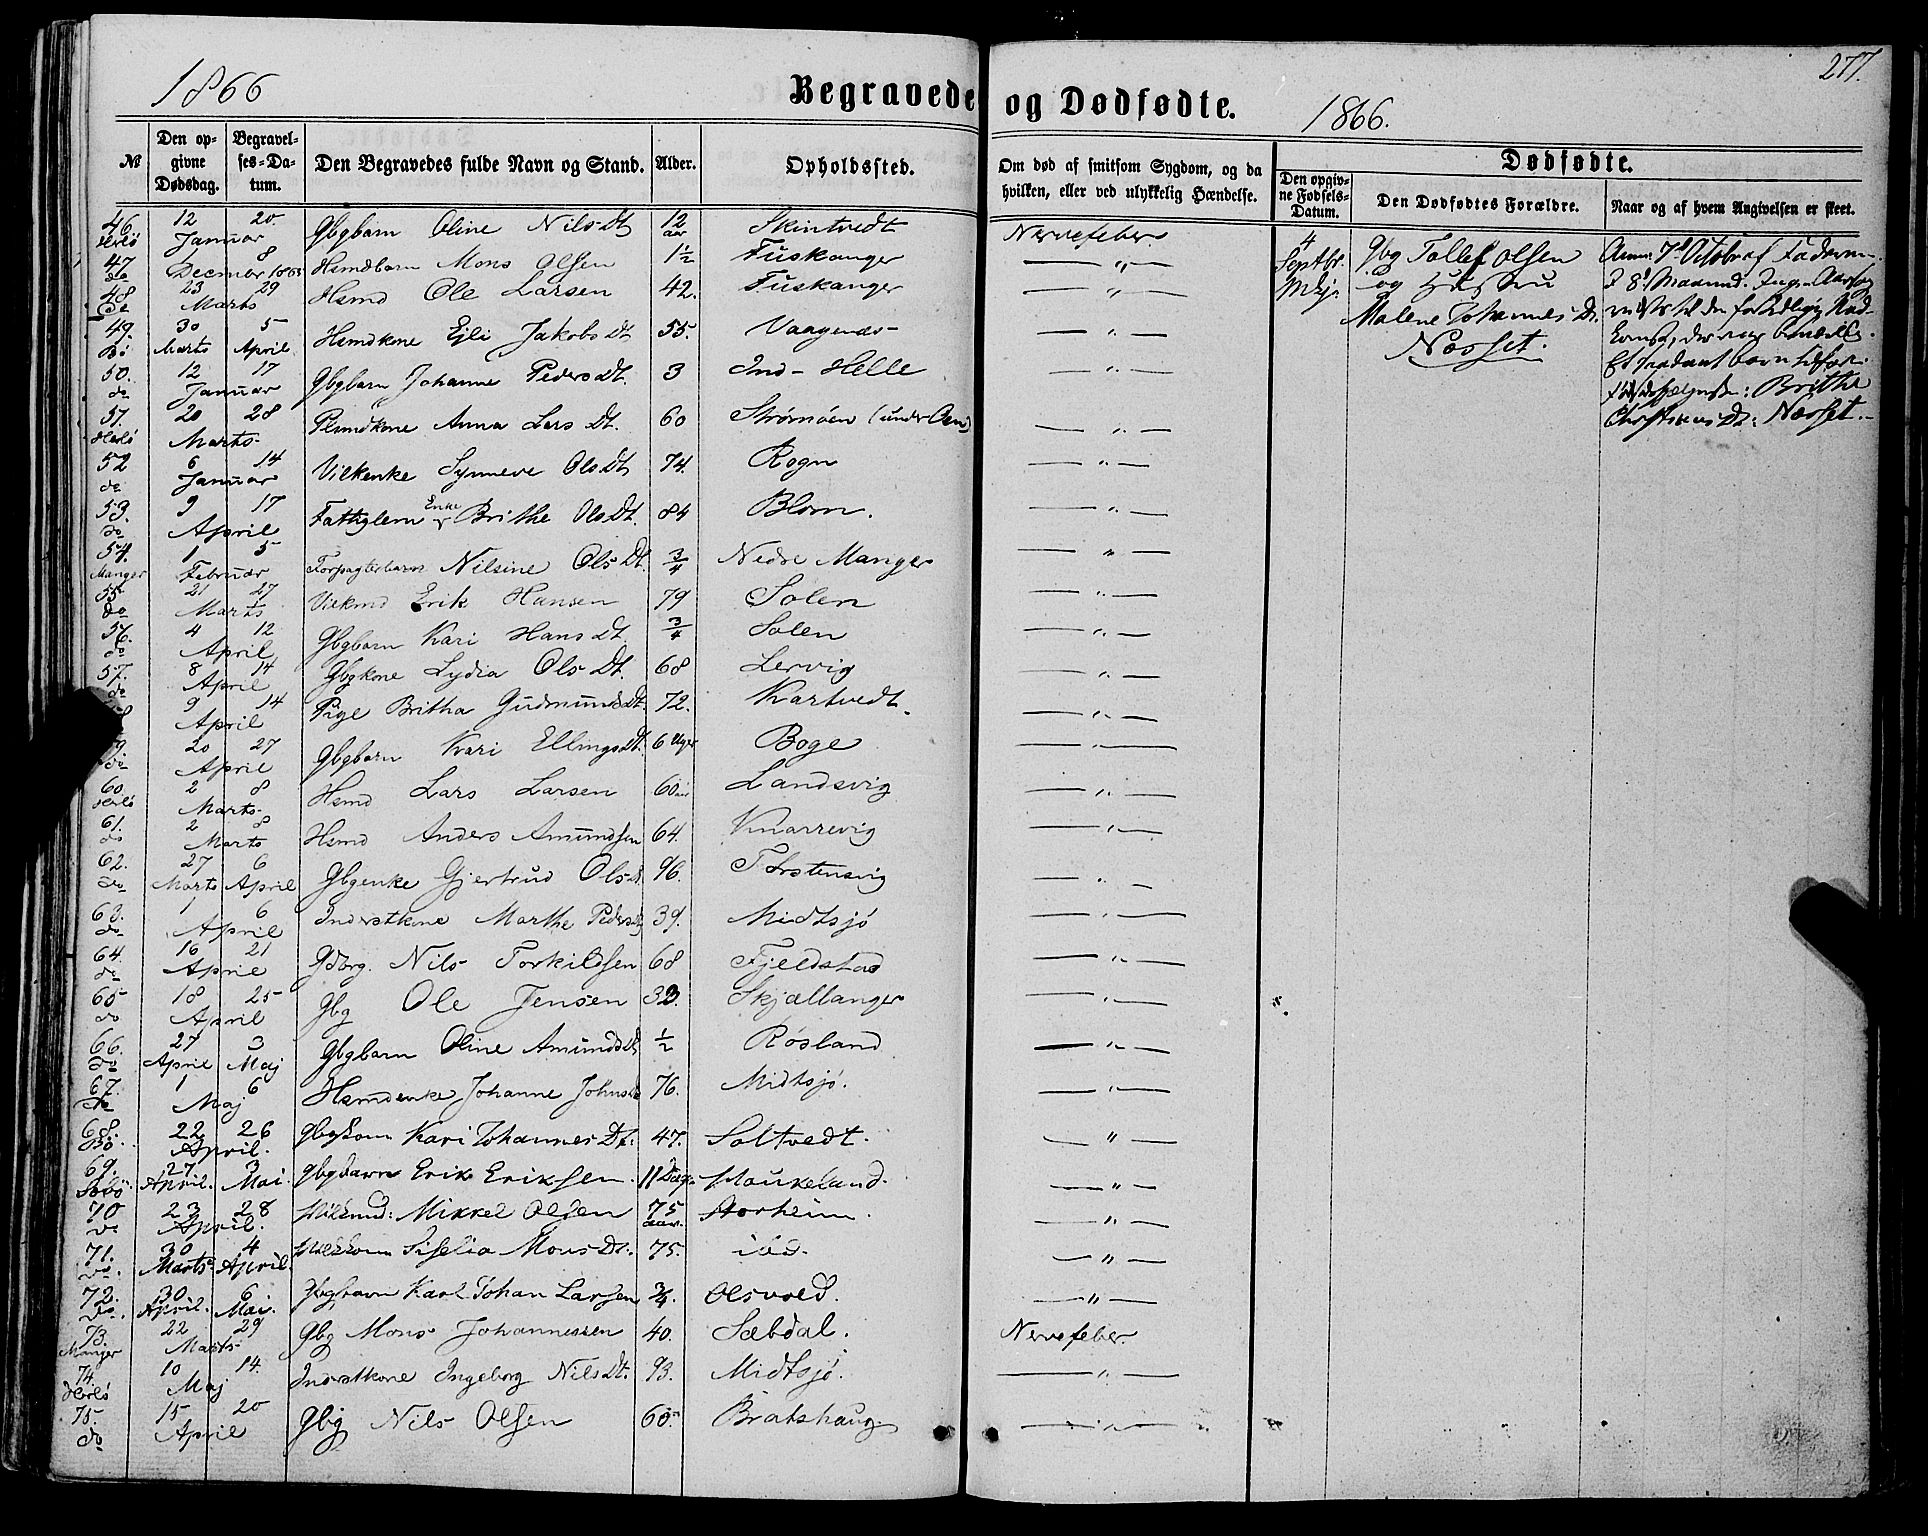 1866
Begravede og Dødfødte.
1866.
277.
№
Den opgivne Dødsdag.
Begravelses-Datum.
Den Begravedes fulde Navn og Stand.
Alder.
Opholdssted.
Om død af smitsom Sygdom, og da hvilken, eller ved ulykkelig Hændelse.
Dødfødte.
Den opgivne Fødsels-Datum.
Den Dødfødtes Forældre.
Naar og af hvem Angivelsen er skeet.
46. Herlö 12 20. Januar Gbgbarn Oline Nils Dt 12 aar Skintvedt Nervefeber.
47 do 8 December 1865 Hsmdbarn Mons Olsen 1½ Fuskanger — " —
48 do 23 29 Marts Hsmd Ole Larsen 42. Fuskanger — " —
49. Bö 30 Marts 5 April Hsmdkone Eli Jakobs Dt 55. Vaagenæs — " —
50. do 12 17 Januar Gbgbarn Johanne Peders Dt. 3 Ind-Helle — " —
51. Herlö 20 28 Marts Plsmdkone Anna Lars Dt. 60 Strømöen (under — " —
52 do 6 14 Januar Vilkenke Synneve Ols Dt 74. Rogn — " —
53. do 9 17 April Fattiglem Enke Brithe Ols Dt. 84 Blom. — " —
54. Manger 1 5 Februar Forpagterbarn Nilsine Ols Dt. ¾ Nedre Manger — " —
55 do 21 27 Marts Vilkmd Erik Hansen 79 Solen — " —
56. do 4 12 April Gbgbarn Kari Hans Dt. ¾ Solen — " —
57. do 8 14 April Gbgkone Lydia Ols Dt. 68 Lervig — " —
9 14 April Pige Britha Gudmunds Dt. 72. Kartvedt. — " —
do 20 27 April Gbgbarn Kari Ellings Dt. 6 Uger Boge — " —
60. Herlö 2 8 Marts Hsmd Lars Larsen 60 aar Landsvig — " —
61. do 2 8 Marts Hsmd Anders Amundsen 64. Knarrevig — " —
62. do 27 Marts 6 April Gbgenke Gjertrud Ols Dt 96. Torstensvig — " —
63. do 1 6 April Inderstkone Marthe Peders Dt 39. Midtsjö — " —
64. do 16 21 April Nils Torkildsen 68 Fjeldstad — " —
65 do 18 25 April Gbg Ole Jensen 33. Skjællanger — " —
66. do 27 April 3 Maj Gbgbarn Oline Amunds Dt ½ Røsland — " —
67. do 1 6 Maj Hsmdenke Johanne Johns Dt 76. Midtsjö. — " —
68. Bö. 22 26 April. Gbgkone Kari Johannes Dt: 47. Soltvedt. — " —
69. 27 April. 3 Mai. Gbgbarn Erik Eriksen. 11 Dage Moukeland. — " —
70 do 23 28 April. Vilkmd: Mikkel Olsen 75 aar. Storheim. — " —
71. do. 30 Marts 4 April. Vilkkone Siselia Mons Dt: 75. ibd. — " —
72. do. 30 April. 6 Mai. Gbgbarn Karl Johan Larsen ¾. Olsvold. — " —
73. Manger 22 29 Marts Gbg Mons Johannessen 40. Sæbdal. Nervefeber.
74. Herlö 10 14. Maj Inderstkone Ingeborg Nils Dt. 93. Midtsjö. — " —
75. do 15 20 April Gbg Nils Olsen 60 Bratshaug. — " —
4 Septbr.
Gbg Tollef Olsen
og Hustru
Malene Johannes Dt.
Næsset.
7d Octobr af Faderen.
Brithe
Næsset.